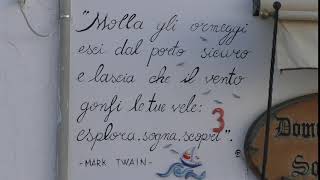 "Molla gli ormeggi
esci dal porto sicuro
e lascia che il vento
gonfi le tue vele:
esplora. sogna. scopri".
3
- MARK TWAIN -